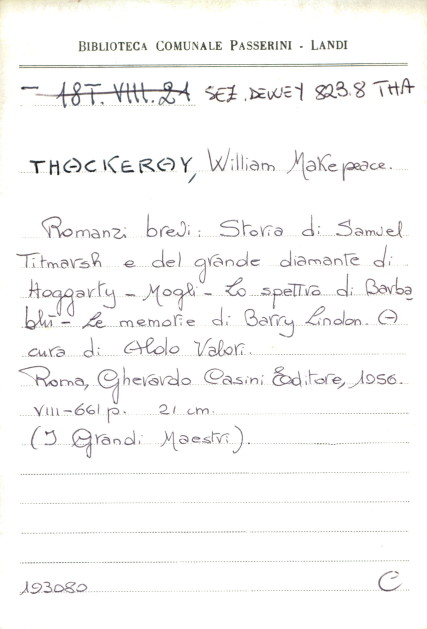 BIBLIOTECA COMUNALE PASSERINI - LANDI
- 18T. VIII. 21 SEZ. DEWEY 823.8 THA
THACKERAY, William Makepeace.
Romanzi brevi: Storia di Samuel
Titmarsh e del grande diamante di
Hoggarty - Mogli - Lo spettro di Barba
blù - Le memorie di Barry Lindon. A
cura di Aldo Valori.
Roma, Gherardo Casini Editore, 1956.
VIII-661 p. 21 cm.
(I Grandi Maestri).
193080 C